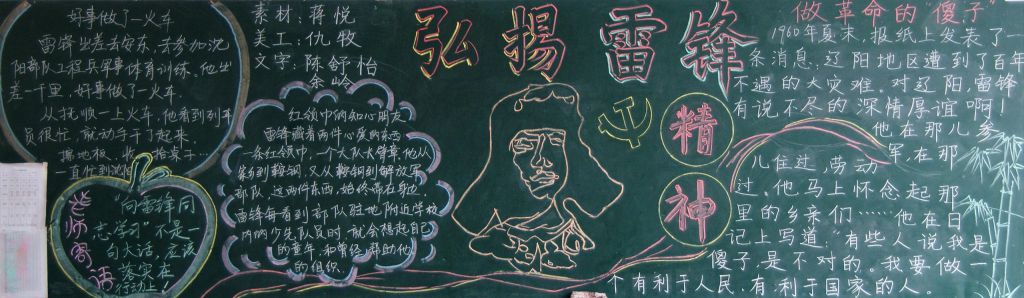 好事做了一火车
雷锋出差去安东,去参加沈
阳部队工程兵军事体育训练。他出
差一千里,好事做了一火车
从抚顺一上火车,他看到列车
员很忙,就动手干了起来
擦地板
一直忙到
素材:蒋悦
美工:仇牧
文字:陈舒怡
余岭
弘揚雷锋
精
神
红领巾的知心朋友
雷锋藏着两件心爱的东西
一条红领巾,一个大队长臂章。他从
又从鞍钢到解放军
部队,这两件东西,始终带在身边
雷锋每看到部队驻地附近学校
内的少先队员时,就会想起自己
的童年,和曾经帮助他
的组织。
老师寄语
“向雷锋同
志学习”不是一
句大话,应该
落实在
行动上!
做革命的“傻子”
1960年夏末,报纸上发表了一
条消息:辽阳地区遭到了百年
不遇的大灾难。对辽阳,雷锋
有说不尽的深情厚谊啊!
他在那儿参
军,在那
儿住过,劳动
过。他马上怀念起那
里的乡亲们……他在日
记上写道:“有些人说我是
傻子,是不对的。我要做一
个有利于人民,有利于国家的人。